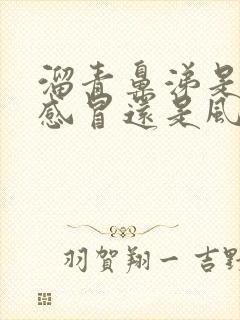 溜青鼻涕是
感冒還是風
羽賀翔一 吉野